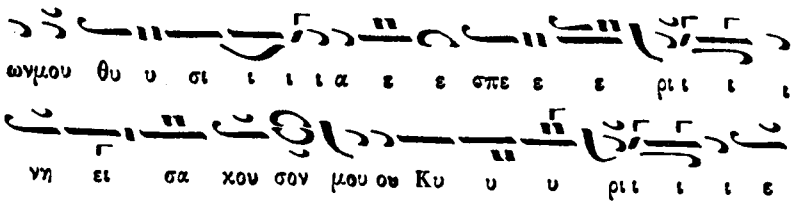 ωνμου θυ υ σι ι ι ι α ε ε σπε ε ε ρι ι ι ι
νη ει σα κου σον μου ου Κυ υ υ ρι ι ι ι ε